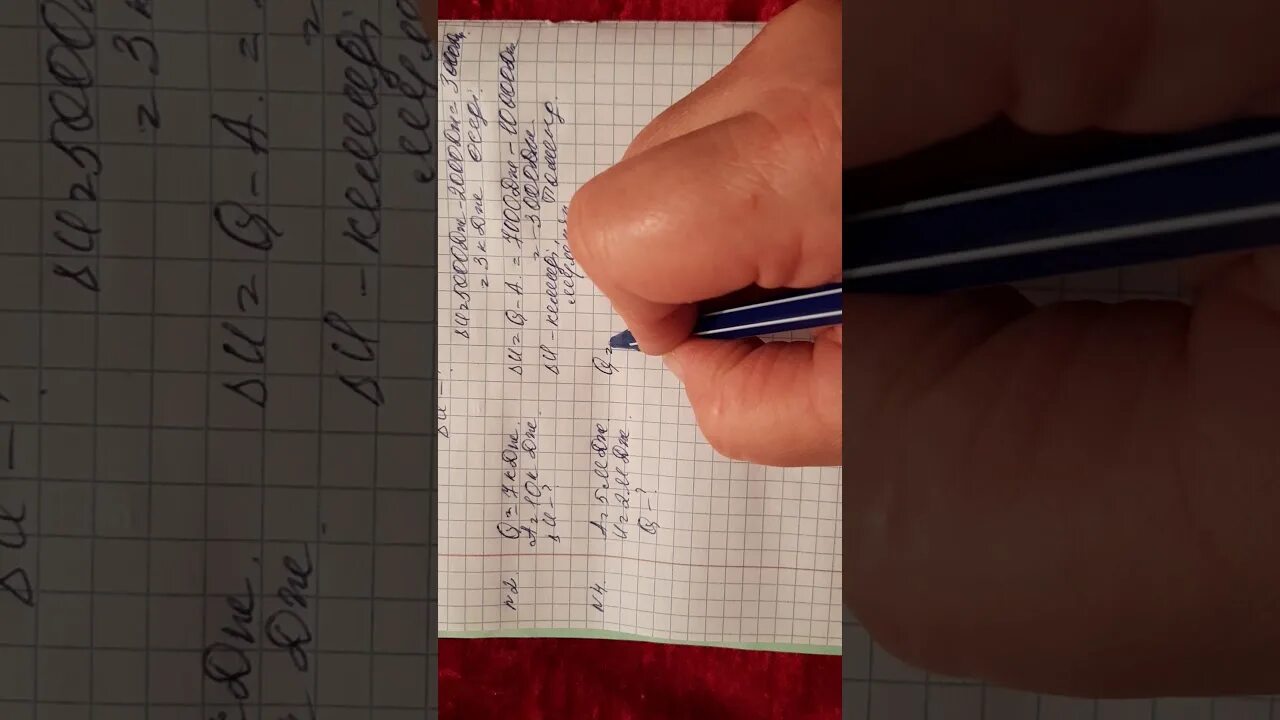 ΔU - ?
ΔU = 5000Дж - 2000Дж = 3000Дж
= 3 кДж өсер
N2. Q = 7 кДж.
A = 10 к Дж.
ΔU - ?
ΔU = Q - A. = 7000Дж - 10000Дж
= - 3000Дж.
ΔU - кемиді
N4. A = 5 МДж.
U = 2МДж.
Q - ?
Q =